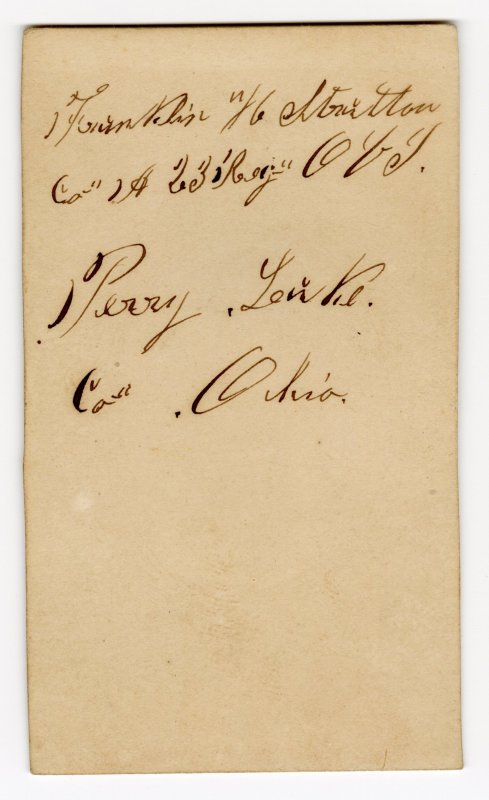 Franklin H Stratton
Co" A 23 Reg" O V I.
Perry . Lake.
Co" . Ohio.